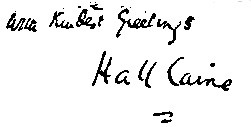 with Kindest Greetings
Hall Caine